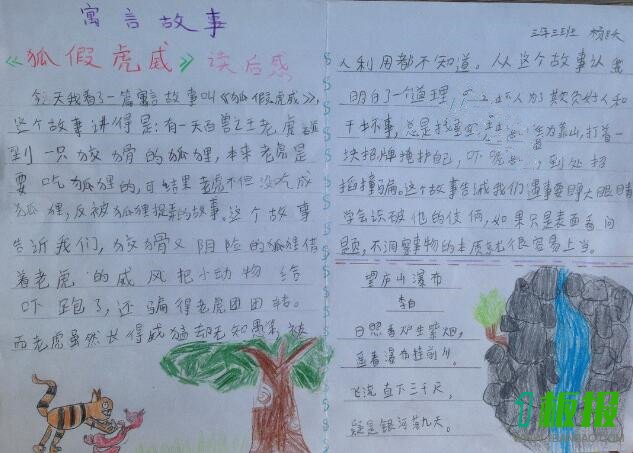 寓言故事
《狐假虎威》读后感
今天我看了一篇寓言故事叫《狐假虎威》,
这个故事讲得是:有一天百兽之王老虎碰
到一只狡猾的狐狸,本来老虎是
要吃狐狸的,可结果老虎不但没吃成
狐狸,反被狐狸捉弄的故事。这个故事
告诉我们,狡猾又阴险的狐狸借
着老虎的威风把小动物给
吓跑了,还骗得老虎团团转。
而老虎虽然长得威猛却无知愚笨,被
三年三班 杨
人利用都不知道。从这个故事让我
明白了一个道理,坏人为了欺负好人和
干坏事,总是找 为靠山,打着一
块招牌掩护自己,吓唬 到处招
摇撞骗。这个故事告诫我们遇事要睁大眼睛
学会识破他的伎俩,如果只是表面看问
题,不洞察事物的本质就很容易上当。
望庐山瀑布
李白
日照香炉生紫烟,
遥看瀑布挂前川。
飞流直下三千尺,
疑是银河落九天。
板报